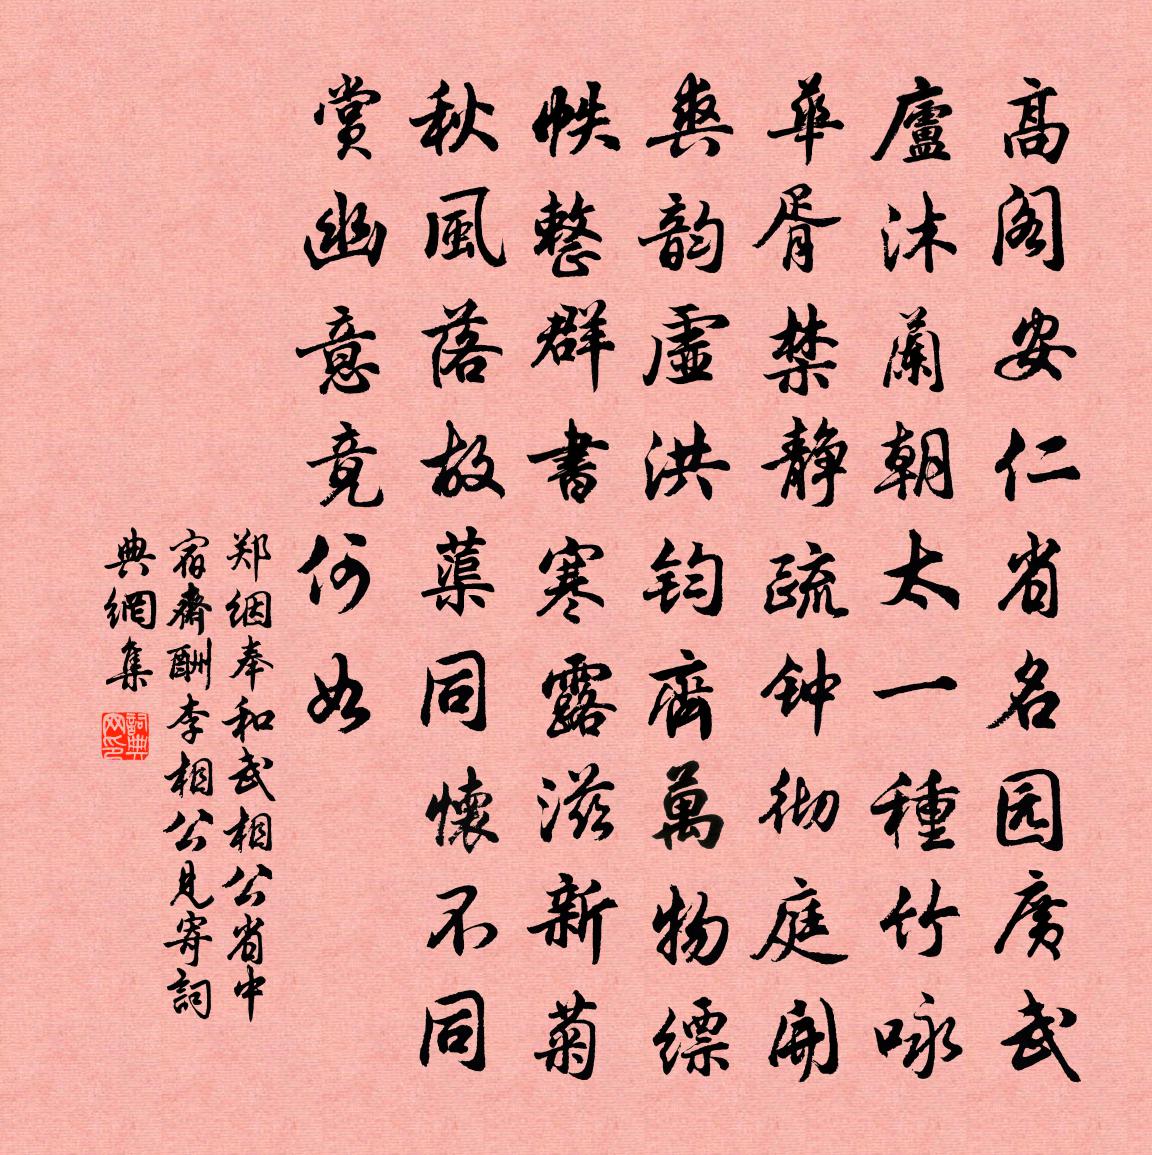 高阁安仁省名园廣武
廬沐蘭朝太一種竹咏
華胥禁静疏钟彻庭開
爽韵虚洪钧齊萬物缥
帙整群書寒露滋新菊
秋風落故蕖同懷不同
賞幽意竟何如
郑絪奉和武相公省中
宿齋酬李相公見寄詞
典網集
詞典网印